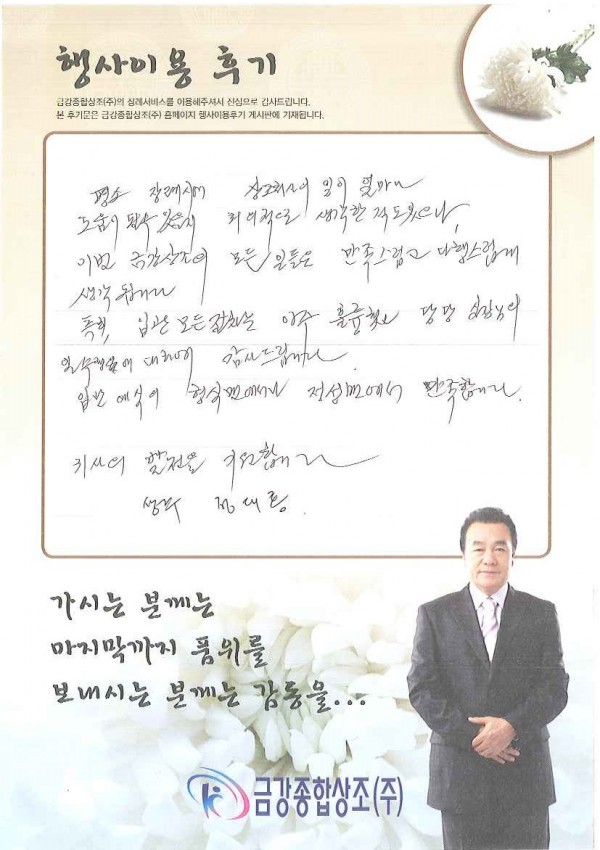 행사이용 후기
금강종합상조(주)의 장례서비스를 이용해주셔서 진심으로 감사드립니다.
본 후기문은 금강종합상조(주) 홈페이지 행사이용후기 게시판에 기재됩니다.
평소 장례시에 상조회사의 일이 얼마나
도움이 될수 있을지 회의적으로 생각한 적도 있으나,
이번 금강상조의 모든 일들은 만족스럽고 다행스럽게
생각됩니다
특히, 입관 모든 절차는 아주 훌륭했고 담당 실장님의
일 수행에 대하여 감사드립니다.
입관 예식이 형식면에서나 정성면에서 만족합니다.
귀사의 발전을 기원합니다
상주
가시는 분께는
마지막까지 품위를
보내시는 분께는 감동을...
금강종합상조(주)